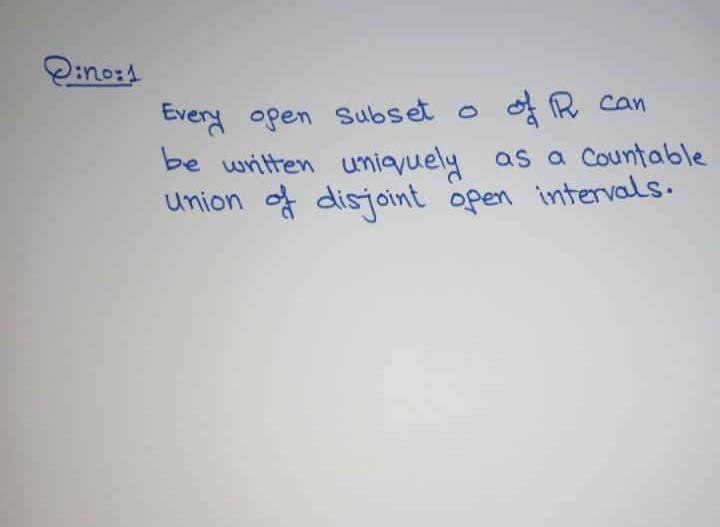 Q:no:1
Every open subset o of ℝ can
be written uniquely as a countable
union of disjoint open intervals.